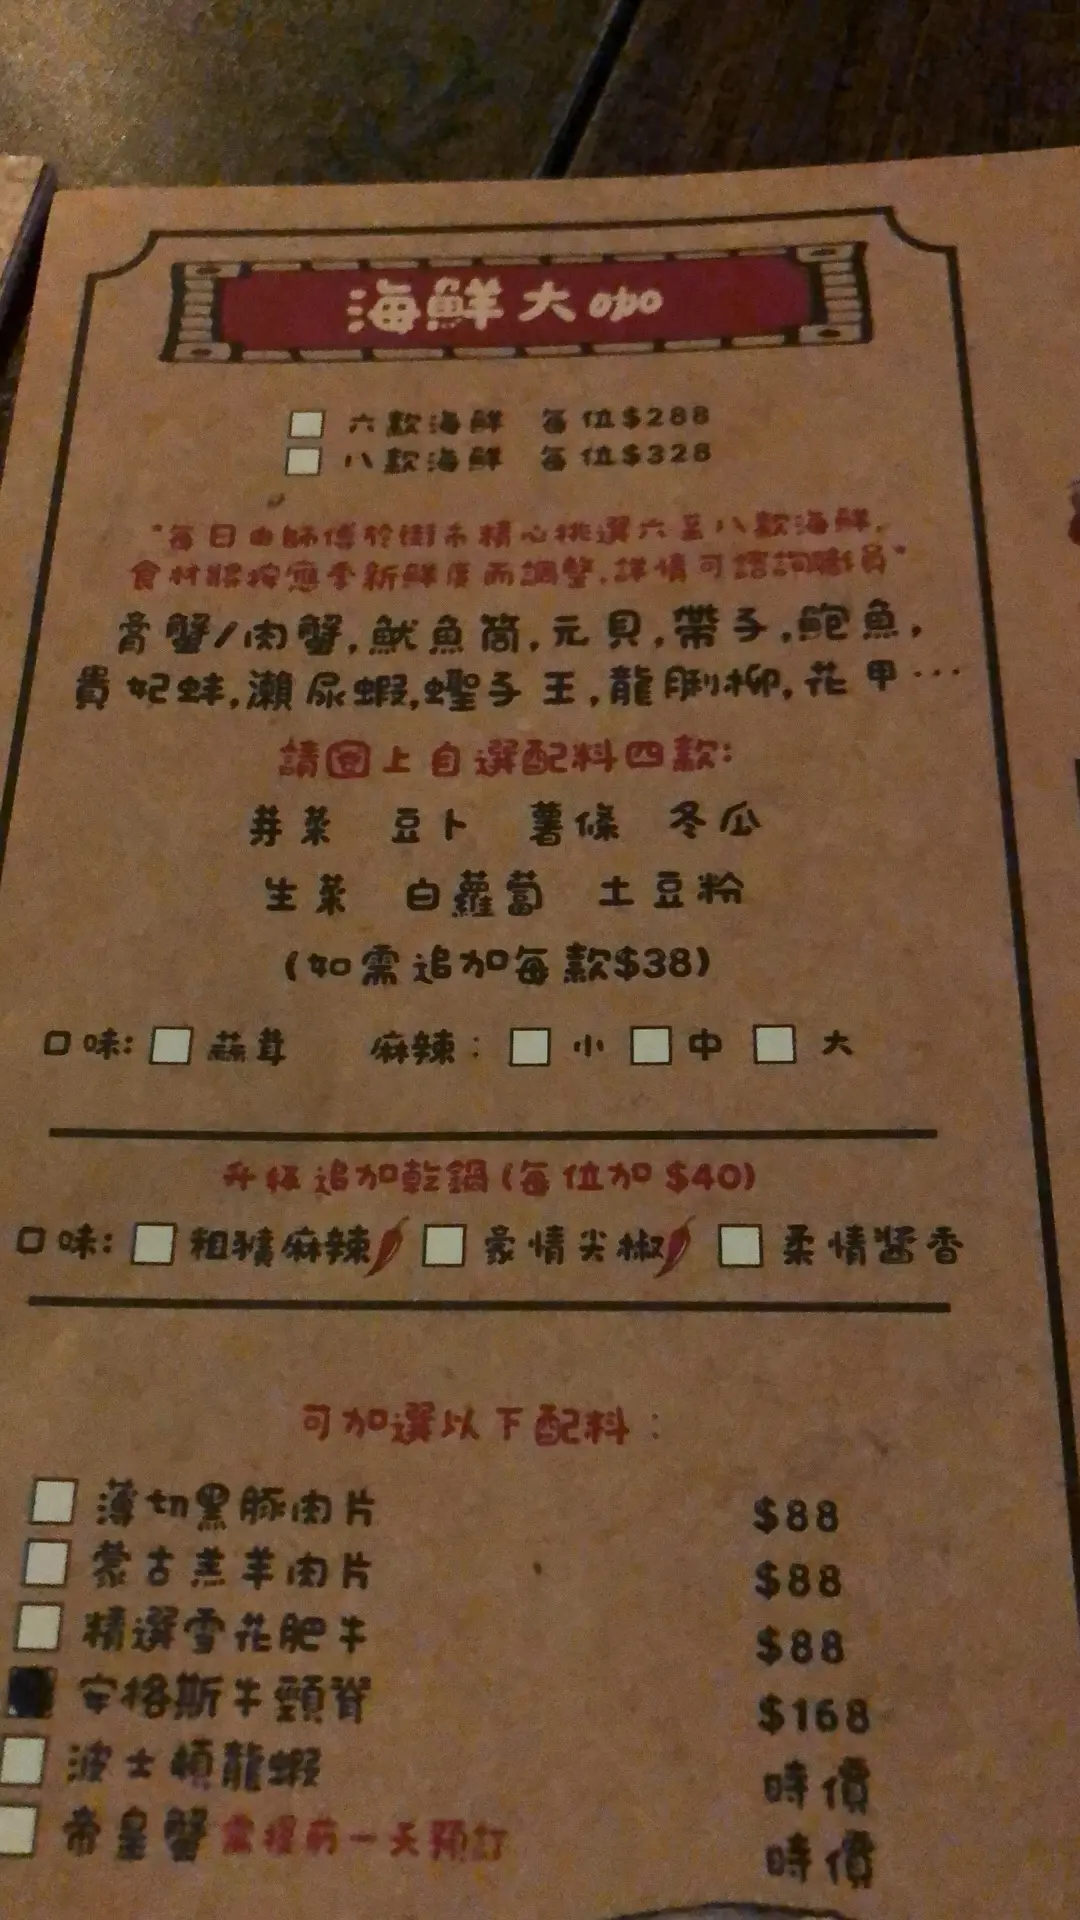 海鮮大咖
六款海鮮 每位$288
八款海鮮 每位$328
"每日由師傅於街市精心挑選六至八款海鮮,
食材將按應季新鮮度而調整,詳情可諮詢職員"
膏蟹/肉蟹,魷魚筒,元貝,帶子,鮑魚,
貴妃蚌,瀨尿蝦,蟶子王,龍脷柳,花甲…
請圈上自選配料四款:
芽菜 豆卜 薯條 冬瓜
生菜 白蘿蔔 土豆粉
(如需追加每款$38)
口味: 蒜茸 麻辣: 小 中 大
升級追加乾鍋(每位加$40)
口味: 粗獷麻辣 豪情尖椒 柔情醬香
可加選以下配料:
薄切黑豚肉片 $88
蒙古羔羊肉片 $88
精選雪花肥牛 $88
安格斯牛頸脊 $168
波士頓龍蝦 時價
帝皇蟹 需提前一天預訂 時價